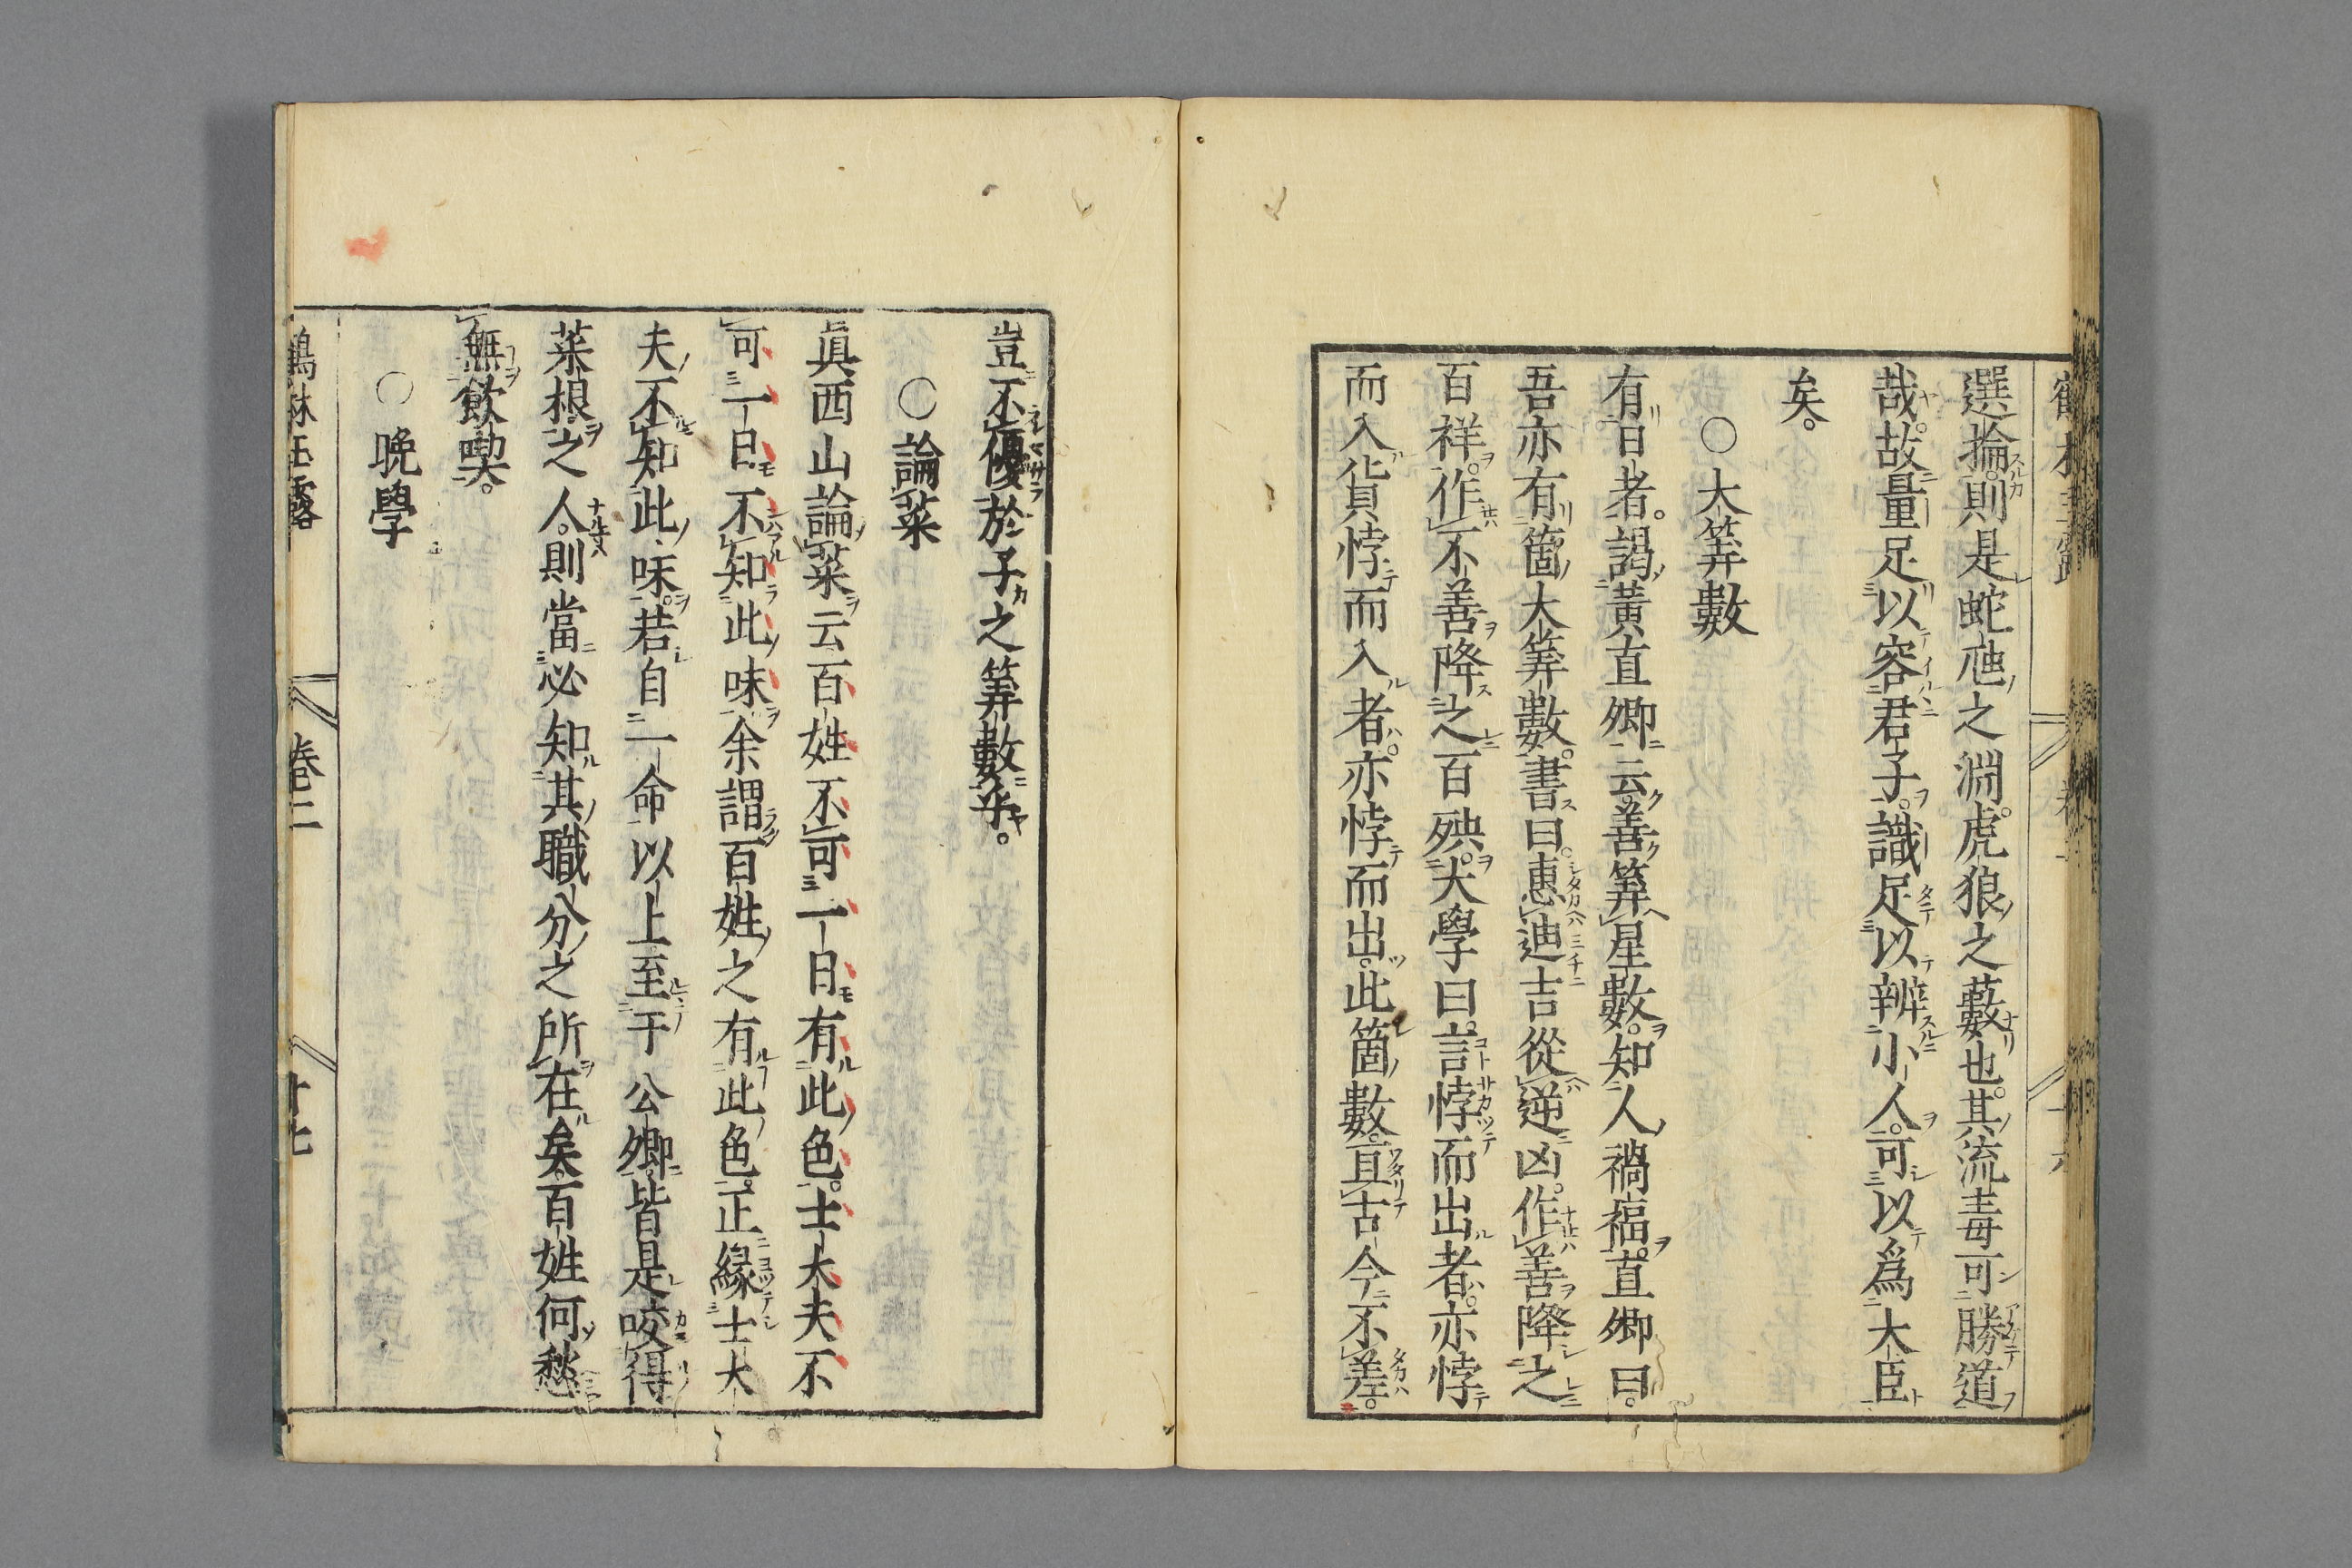 選掄則是蛇虺之淵。虎狼之藪也。其流毒可勝道
哉。故量足以容君子。識足以辨小人。可以爲大臣
矣。
○大筭數
有日者。謁黃直卿云。善筭星數。知人禍福。直卿曰。
吾亦有箇大筭數。書曰。惠迪吉從逆凶。作善降之
百祥。作不善降之百殃。大學曰。言悖而出者。亦悖
而入。貨悖而入者。亦悖而出。此箇數。亘古今不差。
豈不優於子之筭數乎。
○論菜
眞西山論菜云百姓不可一日有此色。士大夫不
可一日不知此味。余謂百姓之有此色。正緣士大
夫不知此味。若自一命以上至于公卿。皆是咬得
菜根之人。則當必知其職分之所在矣。百姓何愁
無飮喫。
○晩學
鶴林玉露
卷二
十七